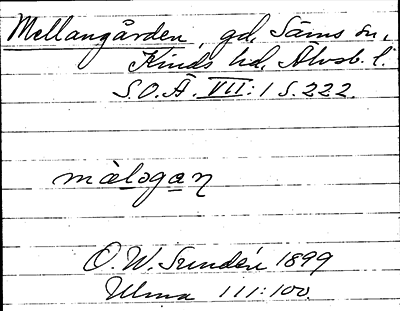 Mellangården, gd, Säms sn,
Kinds hd, Älvsb. l.
S.O.Ä. VII:1 S.222.
màlogan
O.W. Sundén 1899
Ulma 111:100.